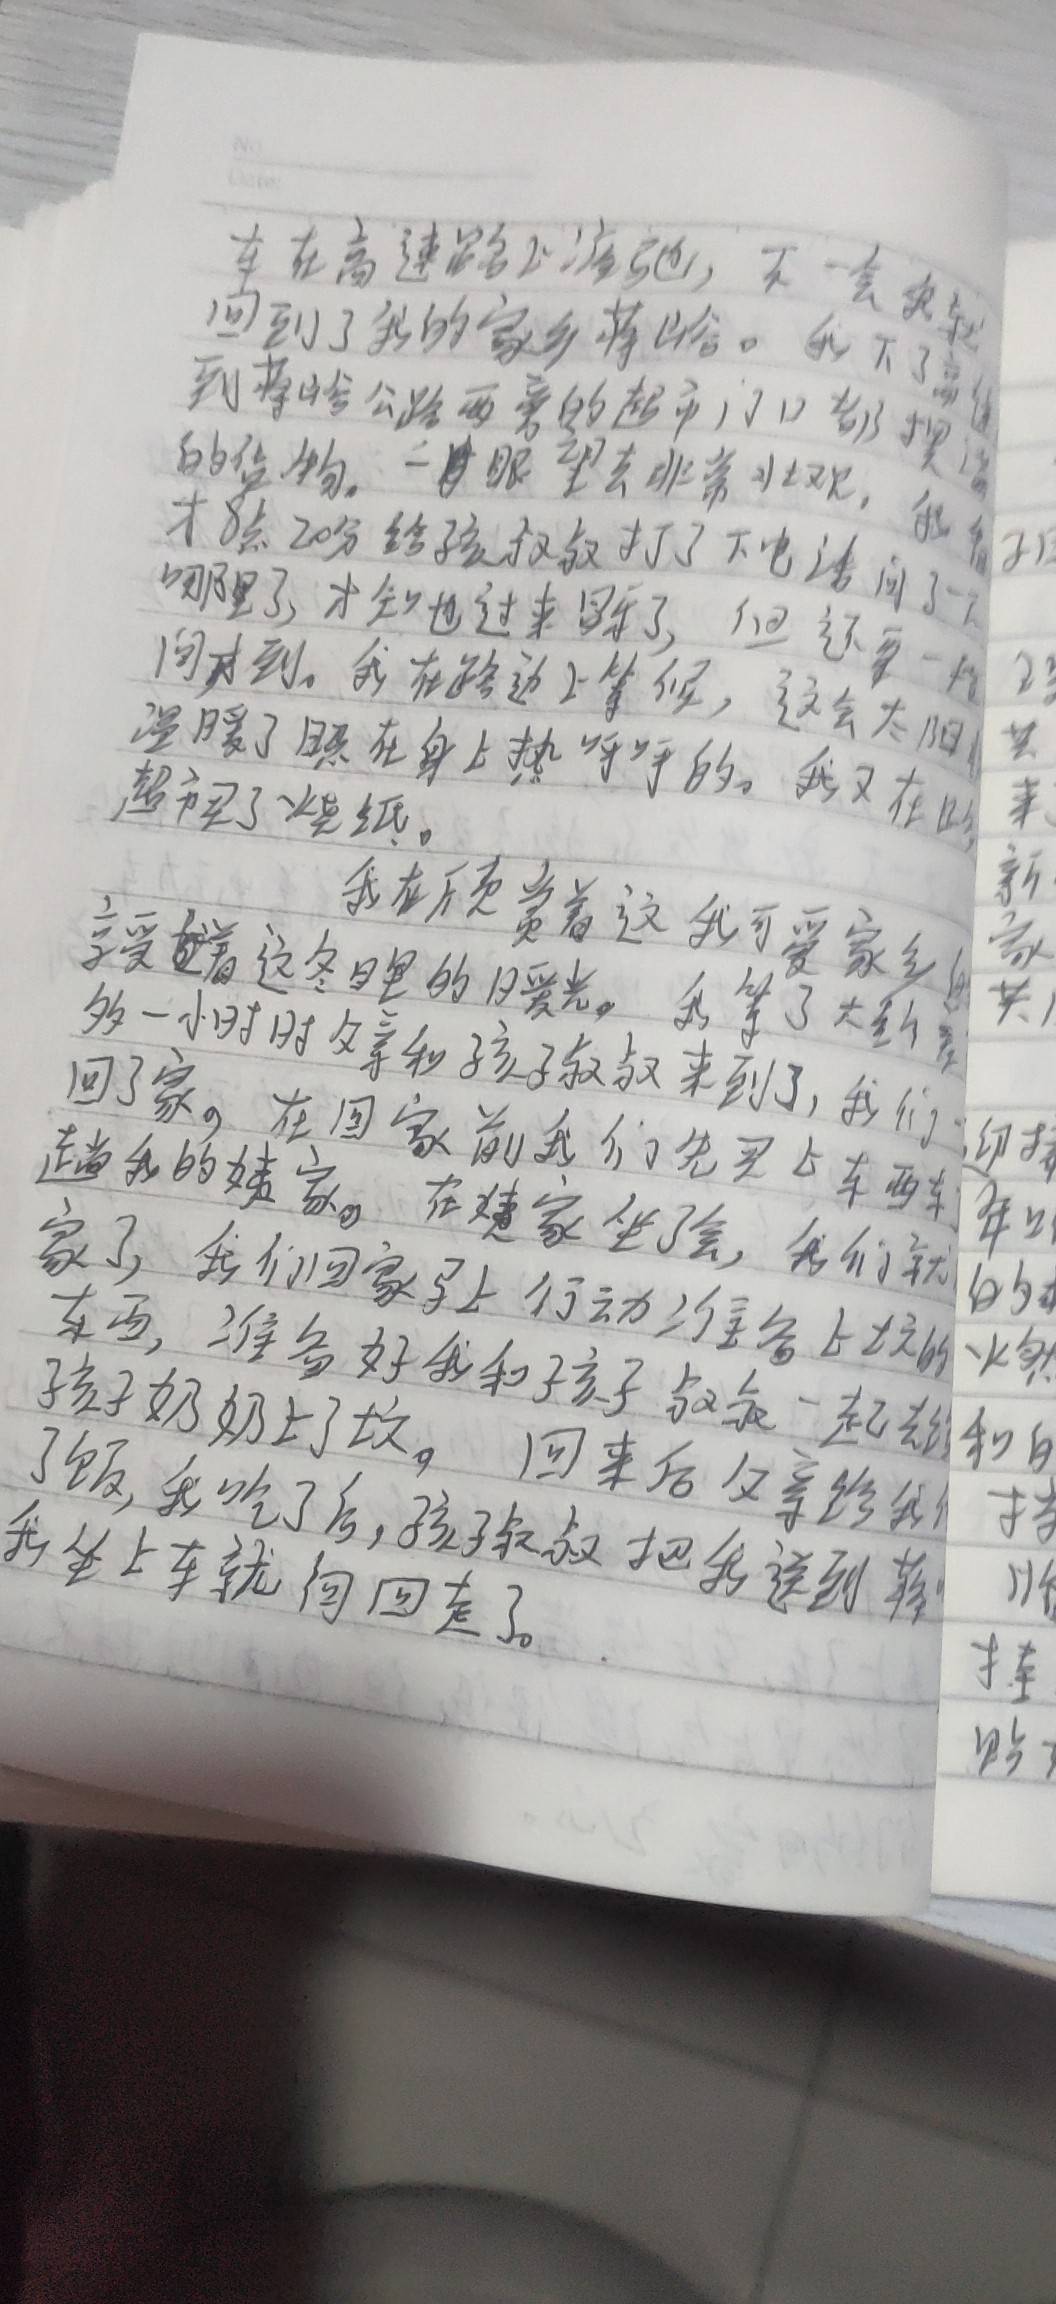 No
Date:
车在高速路上流驰，不一会我就
回到了我的家乡蒋峪。我下了高速
到蒋峪公路两旁的超市门口都摆满
的货物。一眼望去非常壮观，我看
才8点20分给孩叔叔打了下电话问了一下
哪里了，才知也过来呀了，但还要一段
间才到。我在路边上等候，这会太阳
温暖了照在身上热呼呼的。我又在
超市买了火烧纸。
我在欣赏着这我可爱家乡的
享受着这冬日里的日暖光。我等了大约
多一小时时父亲和孩子叔叔来到了，我们一
回了家。在回家前我们先买上东西
趟我的姨家。在姨家坐了会，我们就
家了，我们回家马上行动准备上坟的
东西，准备好我和孩子叔叔一起去给
孩子奶奶上了坟。回来后父亲给我们
了饭，我吃了后，孩子叔叔把我送到蒋
我坐上车就向回走了。
共
来
新
家
共
迎接
年
的
火
和
持
贴